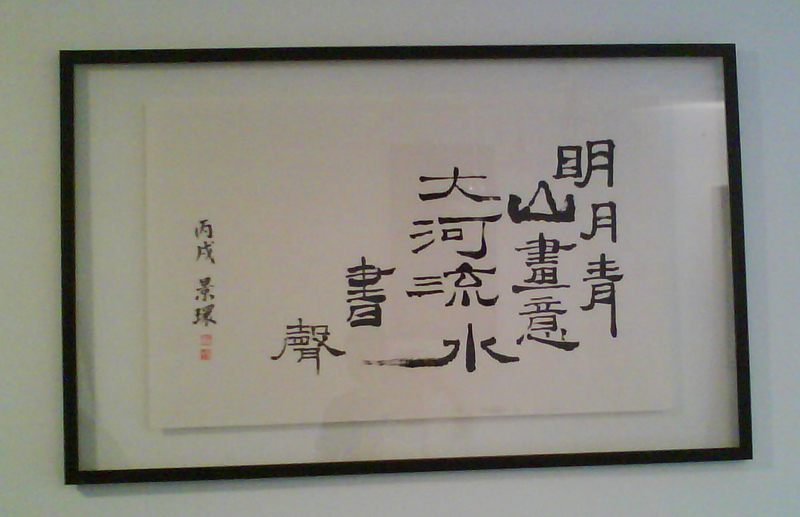 明月青
山畫意
大河流水
書
聲
丙戌 景環